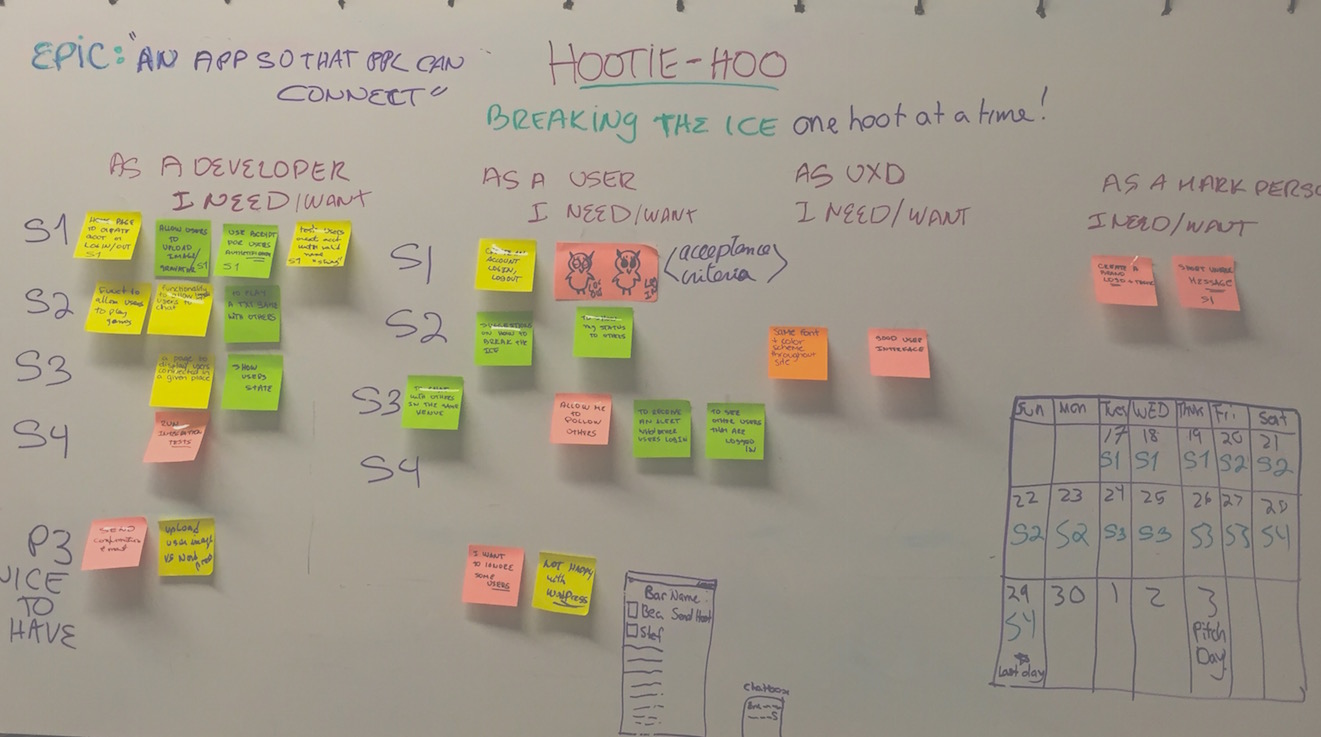 EPIC: "AN APP SO THAT PPL CAN
CONNECT"
HOOTIE-HOO
BREAKING THE ICE one hoot at a time!
AS A DEVELOPER
I NEED/WANT
S1
HOME PAGE
TO CREATE
ACCT OR
LOGIN/OUT
S1
ALLOW USERS
TO
UPLOAD
IMAGE/
S1
USE SCRIPT
FOR USERS
S1
S1
S2
FUNCT to
allow users
to play
games
Functionality
to allow
users to
chat
TO PLAY
A
WITH OTHERS
S3
a page to
display users
connected in
a given place
SHOW
USERS
STATE
S4
RUN
TESTS
P3
NICE
TO
HAVE
SEND
confirmation
email
upload
user image
AS A USER
I NEED/WANT
S1
CREATE
ACCOUNT
LOGIN,
LOGOUT
<acceptance
criteria>
S2
SUGGESTIONS
ON HOW TO
BREAK THE
ICE
MY STATUS
TO OTHERS
S3
TO CHAT
WITH OTHERS
IN THE SAME
VENUE
ALLOW ME
TO
FOLLOW
OTHERS
TO RECEIVE
AN ALERT
WHEN OTHER
USERS LOGIN
TO SEE
OTHER USERS
THAT ARE
LOGGED
IN
S4
I WANT
TO IGNORE
SOME
USERS
NOT HAPPY
with
WordPress
Bar Name
Bea Send Hoot
Stef
Chatbox
AS UXD
I NEED/WANT
Same font
+ color
scheme
throughout
site
GOOD USER
INTERFACE
AS A MARK PERSO
I NEED/WANT
CREATE A
BRAND
LOGO +
MESSAGE
S1
Sun Mon Tues WED Thurs Fri Sat
17 18 19 20 21
S1 S1 S1 S2 S2
22 23 24 25 26 27 28
S2 S2 S3 S3 S3 S3 S4
29 30 1 2 3
S4
Pitch
Day
Last day